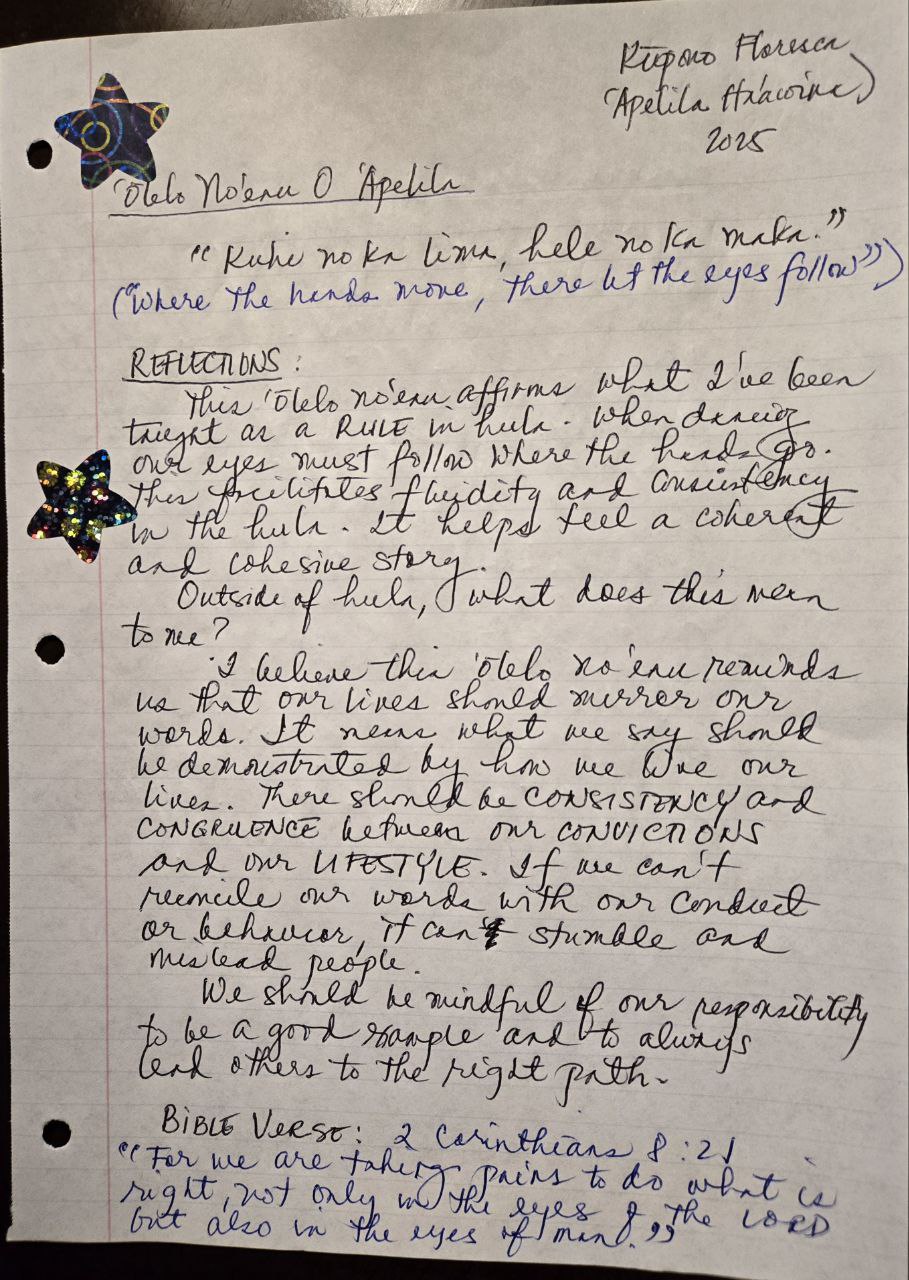 Kūpono Floresca
'Apelila Ha'awina
2025
'Ōlelo No'eau O 'Apelila
"Kuhi no ka lima, hele no ka maka."
("Where the hands move, there let the eyes follow")
REFLECTIONS:
This 'ōlelo no'eau affirms what I've been
taught as a RULE in hula. When dancing
our eyes must follow where the hands go.
This facilitates fluidity and consistency
in the hula. It helps tell a coherent
and cohesive story.
Outside of hula, what does this mean
to me?
I believe this 'ōlelo no'eau reminds
us that our lives should mirror our
words. It means what we say should
be demonstrated by how we live our
lives. There should be CONSISTENCY and
CONGRUENCE between our CONVICTIONS
and our LIFESTYLE. If we can't
reconcile our words with our conduct
or behavior, it can stumble and
mislead people.
We should be mindful of our responsibility
to be a good example and to always
lead others to the right path.
BIBLE VERSE: 2 Corinthians 8:21
"For we are taking pains to do what is
right, not only in the eyes of the LORD
but also in the eyes of man."